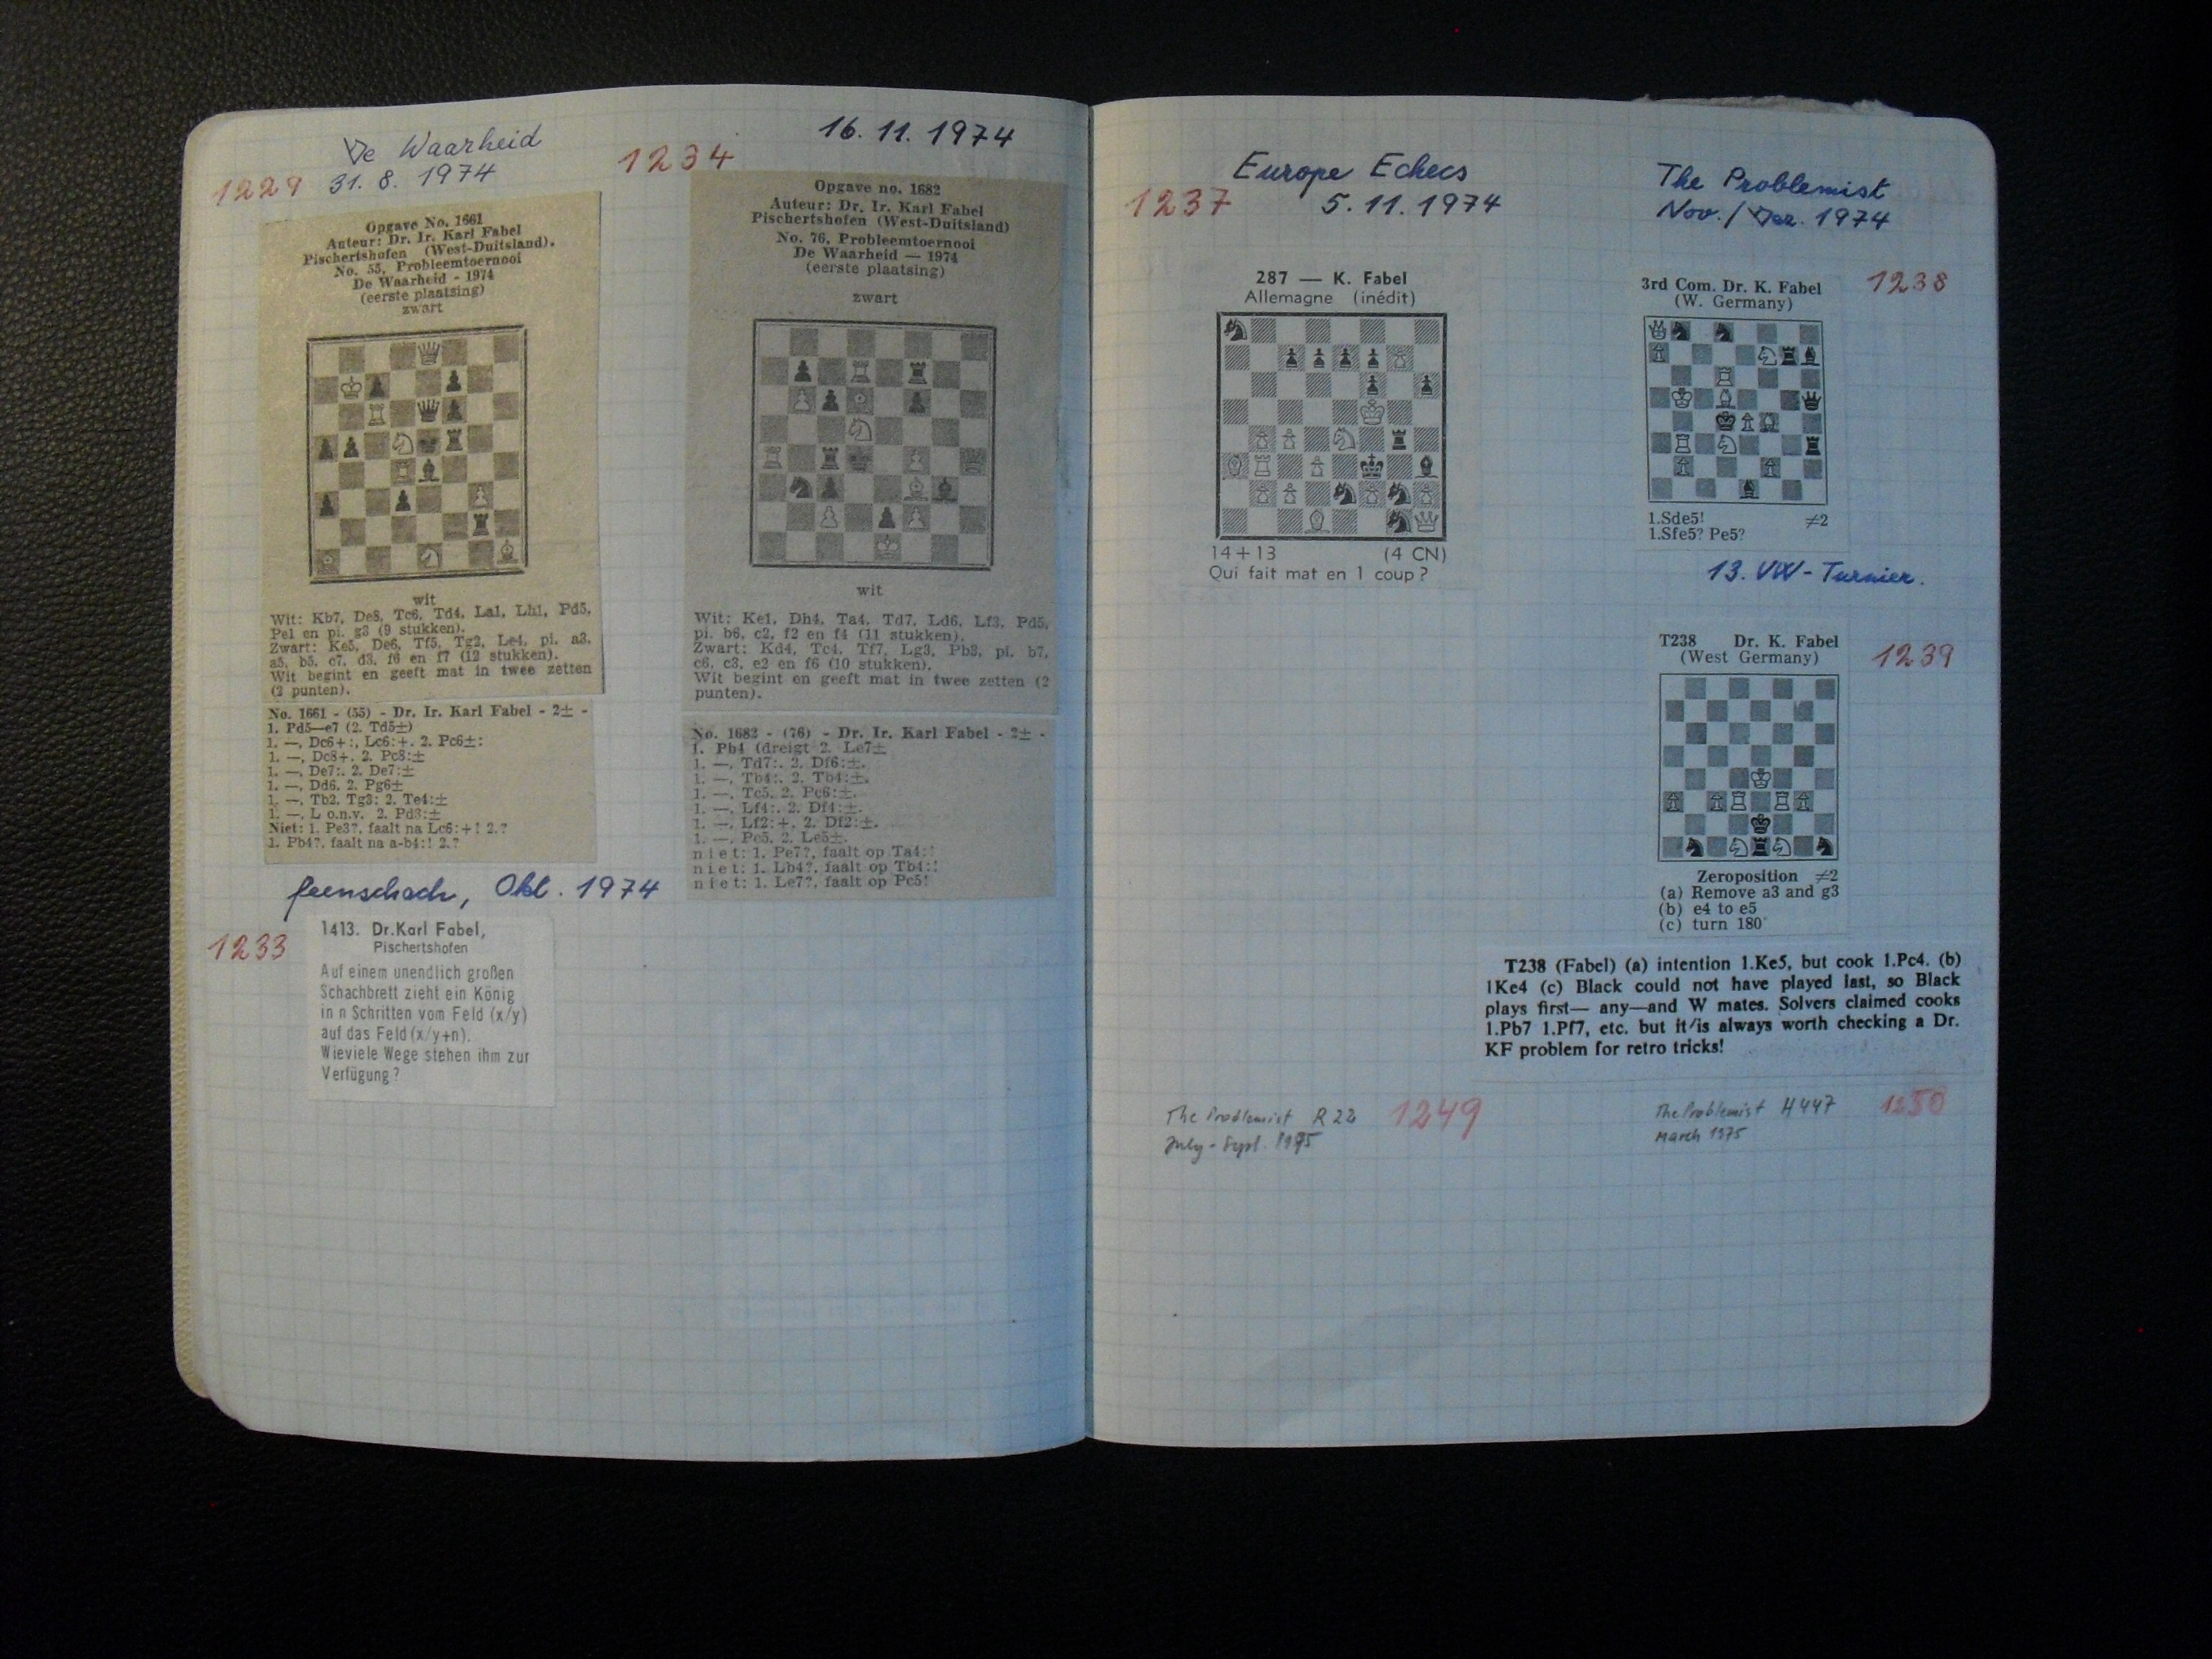 De Waarheid
1229 31. 8. 1974
Opgave No. 1661
Auteur: Dr. Ir. Karl Fabel
Pischertshofen (West-Duitsland).
No. 55, Probleemtoernooi
De Waarheid - 1974
(eerste plaatsing)
zwart
wit
Wit: Kb7, De8, Tc6, Td4, La1, Lh1, Pd5,
Pe1 en pi. g3 (9 stukken).
Zwart: Ke5, De6, Tf5, Tg2, Le4, pi. a3,
a5, b5, c7, d3, f6 en f7 (12 stukken).
Wit begint en geeft mat in twee zetten
(2 punten).
No. 1661 - (55) - Dr. Ir. Karl Fabel - 2± -
1. Pd5—e7 (2. Td5±)
1. —, Dc6+:, Lc6:+. 2. Pc6±:
1. —, Dc8+. 2. Pc8:±
1. —, De7:. 2. De7:±
1. —, Dd6. 2. Pg6±
1. —, Tb2. Tg3: 2. Te4:±
1. —, L o.n.v. 2. Pd3:±
Niet: 1. Pe3?, faalt na Lc6:+! 2.?
1. Pb4?, faalt na a-b4:! 2.?
feenschach, Okt. 1974
1233
1413. Dr.Karl Fabel,
Pischertshofen
Auf einem unendlich großen
Schachbrett zieht ein König
in n Schritten vom Feld (x/y)
auf das Feld (x/y+n).
Wieviele Wege stehen ihm zur
Verfügung?
1234
16. 11. 1974
Opgave no. 1682
Auteur: Dr. Ir. Karl Fabel
Pischertshofen (West-Duitsland)
No. 76, Probleemtoernooi
De Waarheid — 1974
(eerste plaatsing)
zwart
wit
Wit: Ke1, Dh4, Ta4, Td7, Ld6, Lf3, Pd5,
pi. b6, c2, f2 en f4 (11 stukken).
Zwart: Kd4, Tc4, Tf7, Lg3, Pb3, pi. b7,
c6, c3, e2 en f6 (10 stukken).
Wit begint en geeft mat in twee zetten (2
punten).
No. 1682 - (76) - Dr. Ir. Karl Fabel - 2± -
1. Pb4 (dreigt 2. Le7±
1. —, Td7:. 2. Df6:±.
1. —, Tb4:. 2. Tb4:±.
1. —, Tc5. 2. Pc6:±.
1. —, Lf4:. 2. Df4:±.
1. —, Lf2:+. 2. Df2:±.
1. —, Pc5. 2. Le5±.
niet: 1. Pe7?, faalt op Ta4:!
niet: 1. Lb4?, faalt op Tb4:!
niet: 1. Le7?, faalt op Pc5!
Europe Echecs
1237 5. 11. 1974
287 — K. Fabel
Allemagne (inédit)
14+13 (4 CN)
Qui fait mat en 1 coup ?
The Problemist
Nov. / Dez. 1974
1238
3rd Com. Dr. K. Fabel
(W. Germany)
1.Sde5! ≠2
1.Sfe5? Pe5?
13. VW - Turnier.
1239
T238 Dr. K. Fabel
(West Germany)
Zeroposition ≠2
(a) Remove a3 and g3
(b) e4 to e5
(c) turn 180°
T238 (Fabel) (a) intention 1.Ke5, but cook 1.Pc4. (b)
1Ke4 (c) Black could not have played last, so Black
plays first— any—and W mates. Solvers claimed cooks
1.Pb7 1.Pf7, etc. but it/is always worth checking a Dr.
KF problem for retro tricks!
The Problemist R 22 1249
July - Sept. 1975
The Problemist H447 1250
March 1975